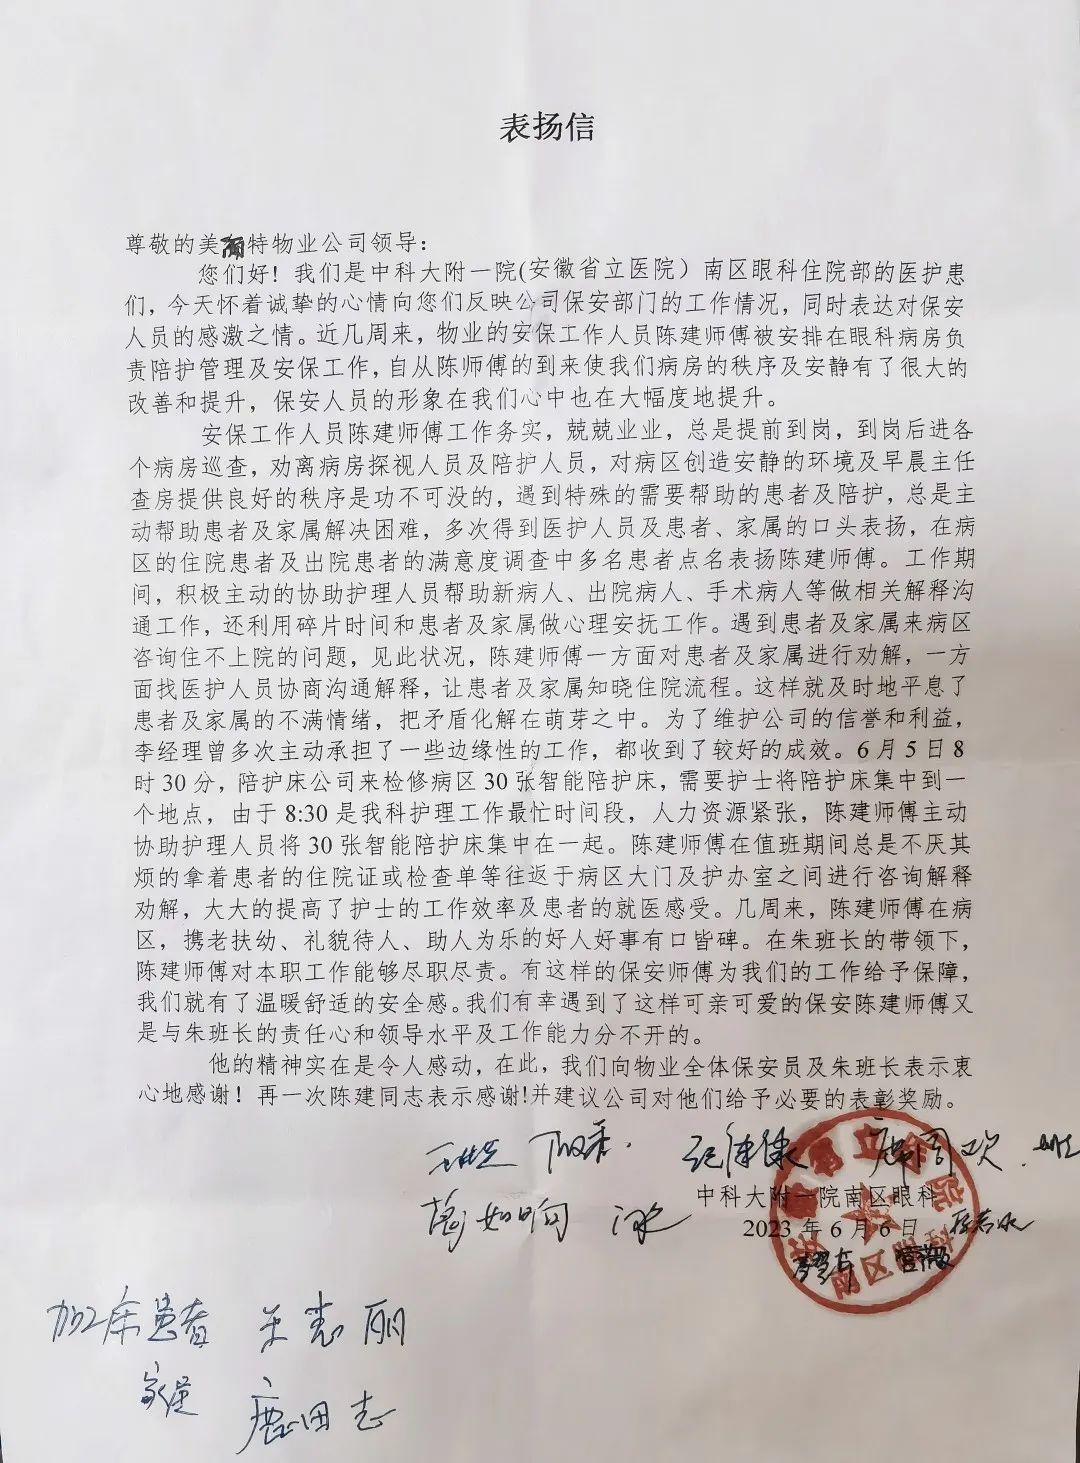 表扬信
尊敬的美而特物业公司领导：
您们好！我们是中科大附一院(安徽省立医院）南区眼科住院部的医护患
们，今天怀着诚挚的心情向您们反映公司保安部门的工作情况，同时表达对保安
人员的感激之情。近几周来，物业的安保工作人员陈建师傅被安排在眼科病房负
责陪护管理及安保工作，自从陈师傅的到来使我们病房的秩序及安静有了很大的
改善和提升，保安人员的形象在我们心中也在大幅度地提升。
安保工作人员陈建师傅工作务实，兢兢业业，总是提前到岗，到岗后进各
个病房巡查，劝离病房探视人员及陪护人员，对病区创造安静的环境及早晨主任
查房提供良好的秩序是功不可没的，遇到特殊的需要帮助的患者及陪护，总是主
动帮助患者及家属解决困难，多次得到医护人员及患者、家属的口头表扬，在病
区的住院患者及出院患者的满意度调查中多名患者点名表扬陈建师傅。工作期
间，积极主动的协助护理人员帮助新病人、出院病人、手术病人等做相关解释沟
通工作，还利用碎片时间和患者及家属做心理安抚工作。遇到患者及家属来病区
咨询住不上院的问题，见此状况，陈建师傅一方面对患者及家属进行劝解，一方
面找医护人员协商沟通解释，让患者及家属知晓住院流程。这样就及时地平息了
患者及家属的不满情绪，把矛盾化解在萌芽之中。为了维护公司的信誉和利益，
李经理曾多次主动承担了一些边缘性的工作，都收到了较好的成效。6月5日8
时30分，陪护床公司来检修病区30张智能陪护床，需要护士将陪护床集中到一
个地点，由于8:30是我科护理工作最忙时间段，人力资源紧张，陈建师傅主动
协助护理人员将30张智能陪护床集中在一起。陈建师傅在值班期间总是不厌其
烦的拿着患者的住院证或检查单等往返于病区大门及护办室之间进行咨询解释
劝解，大大的提高了护士的工作效率及患者的就医感受。几周来，陈建师傅在病
区，携老扶幼、礼貌待人、助人为乐的好人好事有口皆碑。在朱班长的带领下，
陈建师傅对本职工作能够尽职尽责。有这样的保安师傅为我们的工作给予保障，
我们就有了温暖舒适的安全感。我们有幸遇到了这样可亲可爱的保安陈建师傅又
是与朱班长的责任心和领导水平及工作能力分不开的。
他的精神实在是令人感动，在此，我们向物业全体保安员及朱班长表示衷
心地感谢！再一次陈建同志表示感谢!并建议公司对他们给予必要的表彰奖励。
中科大附一院南区眼科
2023年6月6日
患者
家属